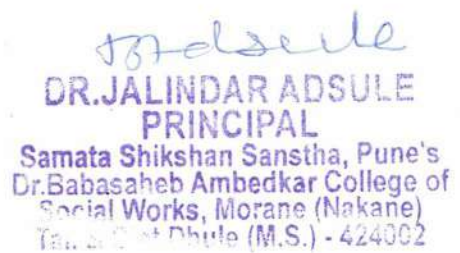 DR.JALINDAR ADSULE
PRINCIPAL
Samata Shikshan Sanstha, Pune's
Dr.Babasaheb Ambedkar College of
Social Works, Morane (Nakane)
Tal. & Dist Dhule (M.S.) - 424002